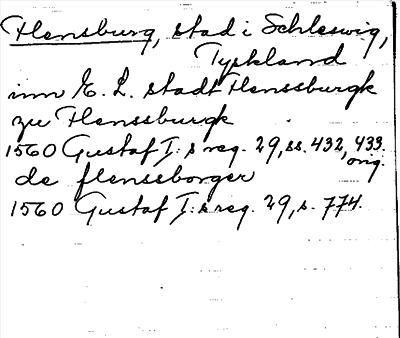 Flensburg, stad i Schleswig,
Tyskland
inn E. L. stadt Flenssburgk
zu Flenssburgk
1560 Gustaf I:s reg. 29, ss. 432, 433.
orig.
de flensborger
1560 Gustaf I:s reg. 29, s. 774.